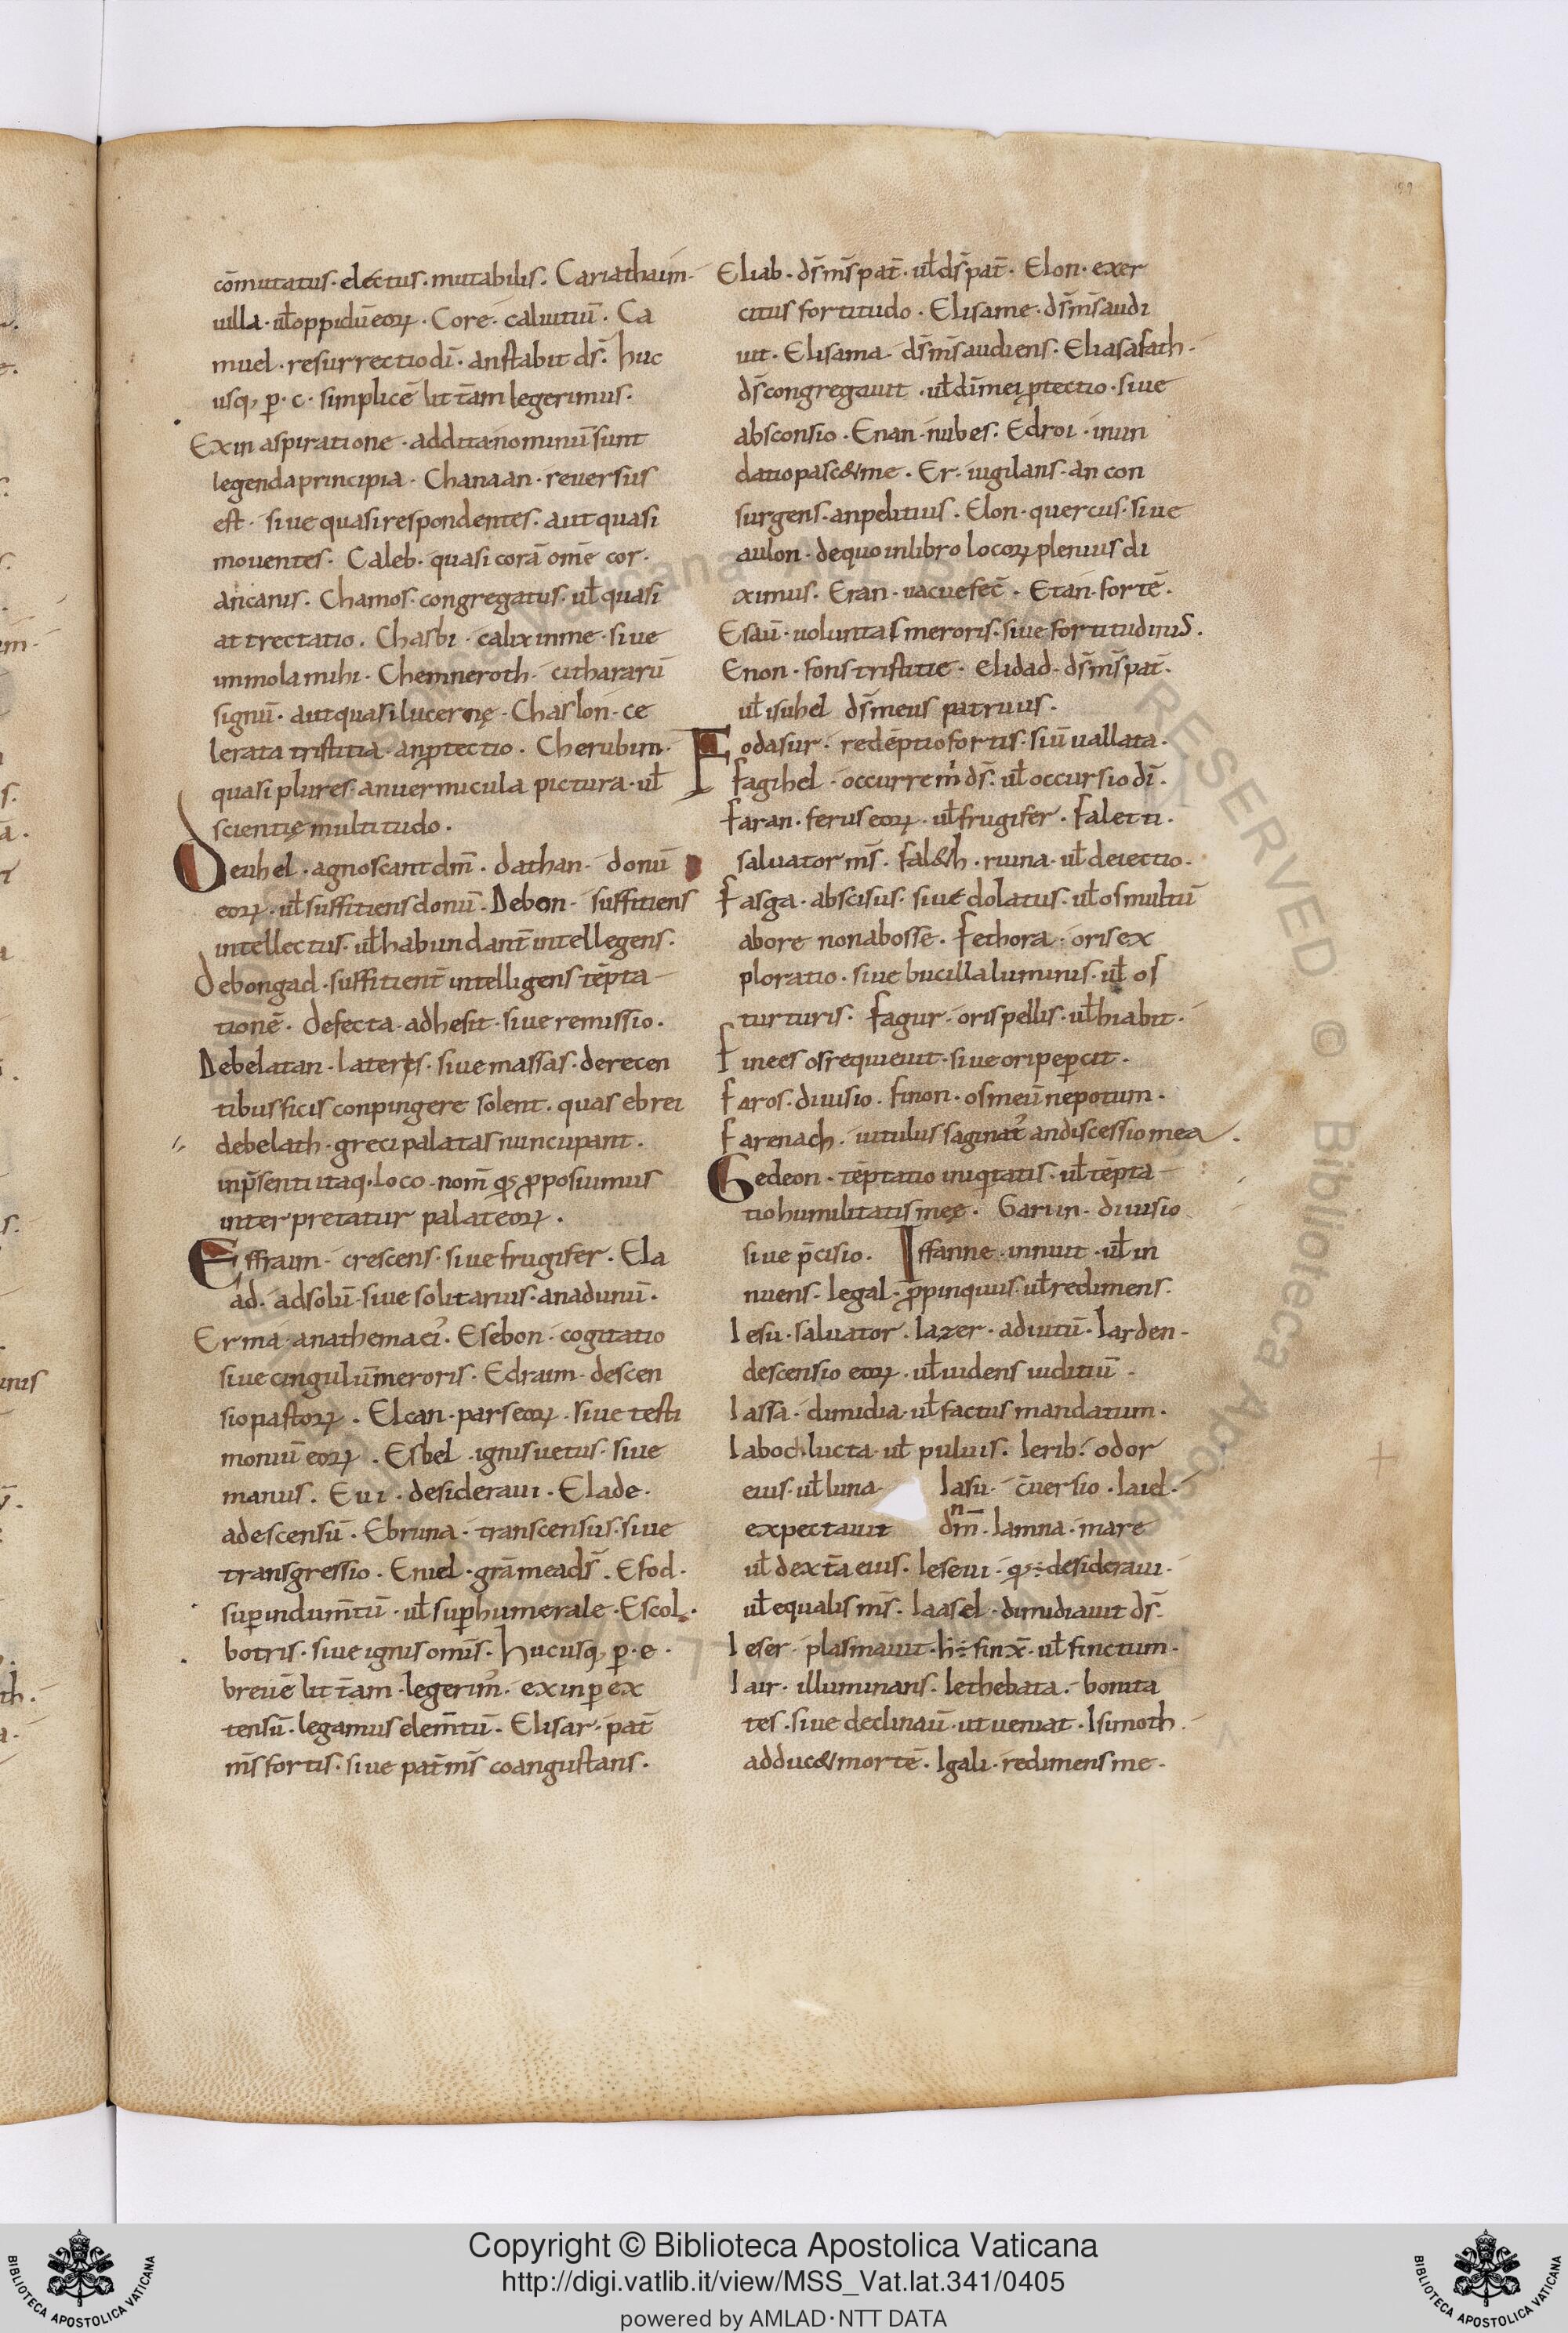 cōmutatus· electus· mutabilis. Cariathaim·
uilla· ul̄ oppidū eoꝝ· Core· caluitiū. Ca
muel· resurrectio dī· an stabit ds̄. huc
usq; ꝑ·c· simplicē lit̄tam legerimus.
Exin aspiratione· addita nominū sunt
legenda principia· Chanaan· reuersus
est· siue quasi respondentes. aut quasi
mouentes. Caleb· quasi corā om̄e cor·
an canis. Chamos· congregatus· ul̄ quasi
attrectatio. Chasbi· calix in me· siue
immola mihi· Chemneroth· cithararū
signū· aut quasi lucernę· Chaslon· ce
lerata tristitia· an ꝓtectio· Cherubim·
quasi plures· an uermicula pictura· ul̄
scientię multitudo·
Deuhel· agnoscant dm̄· dathan· donū
eoꝝ· ul̄ suffitiens donū· Debon· suffitiens
intellectus· ul̄ habundant̄ intellegens·
Debongad· suffitient̄ intelligens tēpta
tionē· defecta· adhesit· siue remissio·
Debelatan· lateres· siue massas· de recen
tibus ficis conpingere solent· quas ebrei
debelath· greci palatas nuncupant·
in p̄senti itaq· loco· nom̄ qs ꝓposiumus
interpretatur palat eoꝝ·
Effraim· crescens· siue frugifer· Ela
ad· ad solū· siue solitarius· an adunū·
Erma· anathema ei᾽· Esebon· cogitatio
siue cingulū meroris· Edraim· descen
sio pastoꝝ· Elcan· pars eoꝝ· siue testi
moniū eoꝝ· Esbel· ignis uetus· siue
manus· Eui· desideraui· Elade·
ad escensū· Ebruna· transcensus· siue
transgressio· Eniel· grā mea ds̄· Efod·
suꝑindum̄tū· ul̄ suꝑhumerale· Escol·
botris· siue ignis om̄s· Hucusq; ꝑ·e·
breuē lit̄tam· legerim᾽· exin ꝑ ex
tensū· legamus elem̄tū· Elisar· pat̄
m̄s fortis· siue pat̄ m̄s coangustans·
Eliab· ds̄ m̄s pat̄· ul̄ ds̄ pat̄· Elon· exer
citus fortitudo· Elisame· ds̄ m̄s audi
uit· Elisama· ds̄ m̄s audiens· Eliasafath·
ds̄ congregauit· ul̄ dī mei ꝓtectio· siue
absconsio· Enan· nubes· Edroi· inun
datio pasc& me· Er· uigilans· an con
surgens· an pelitius· Elon· quercus· siue
aulon· de quo in libro locoꝝ plenius di
ximus· Eran· uacuefec̄· Etan· fortē·
Esau· uoluntas meroris· siue fortitudinis·
Enon· fons tristitie· elidad· ds̄ m̄s pat̄·
ul̄ isuhel ds̄ meus patruus·
Fodasur· redēptio fortis· siū uallata·
fagihel· occurre m̄ ds̄· ul̄ occursio dī·
faran· ferus eoꝝ· ul̄ frugifer· faleti·
saluator m̄s· fal&h· ruina· ul̄ deiectio·
fasga· abscisus· siue dolatus· ul̄ os multū
abore non abosse· fethora· oris ex
ploratio· siue bucilla luminis· ul̄ os
turturis· fagur· oris pellis· ul̄ hiabit·
finees os requieuit· siue ori peꝑcit·
faros· diuisio· finon· os meū nepotum·
farenach· uitulus saginat᾽ an discessio mea·
Gedeon· tēptatio iniqtatis· ul̄ tēpta
tio humilitatis meę· Garim· diuisio
siue p̄cisio· Iffanne· innuit· ul̄ in
nuens· Iegal· ꝓpinquus· ul̄ redimens·
Iesu· saluator· Iazer· adiutū· Iarden·
descensio eoꝝ· ul̄ uidens iuditiū·
Iassa· dimidia· ul̄ factus mandatum·
Iaboch lucta· ul̄ puluis· Ierib· odor
eius· ul̄ luna· Iasu· c̄uersio· Iaiel·
expectauit dn̄m· Iamna· mare
ul̄ dext̄a eius· Ieseui· qs÷ desideraui·
ul̄ equalis m̄s· Iaasel· dimidiauit ds̄·
Ieser· plasmauit· h÷ finx̄· ul̄ finctum·
Iair· illuminans· Iethebata· bonita
tes· siue declinaū· ut ueniat· Isimoth·
adduc& mortē· Igali· redimens me·
Copyright © Biblioteca Apostolica Vaticana
http://digi.vatlib.it/view/MSS_Vat.lat.341/0405
powered by AMLAD·NTT DATA
BIBLIOTECA APOSTOLICA VATICANA
BIBLIOTECA APOSTOLICA VATICANA